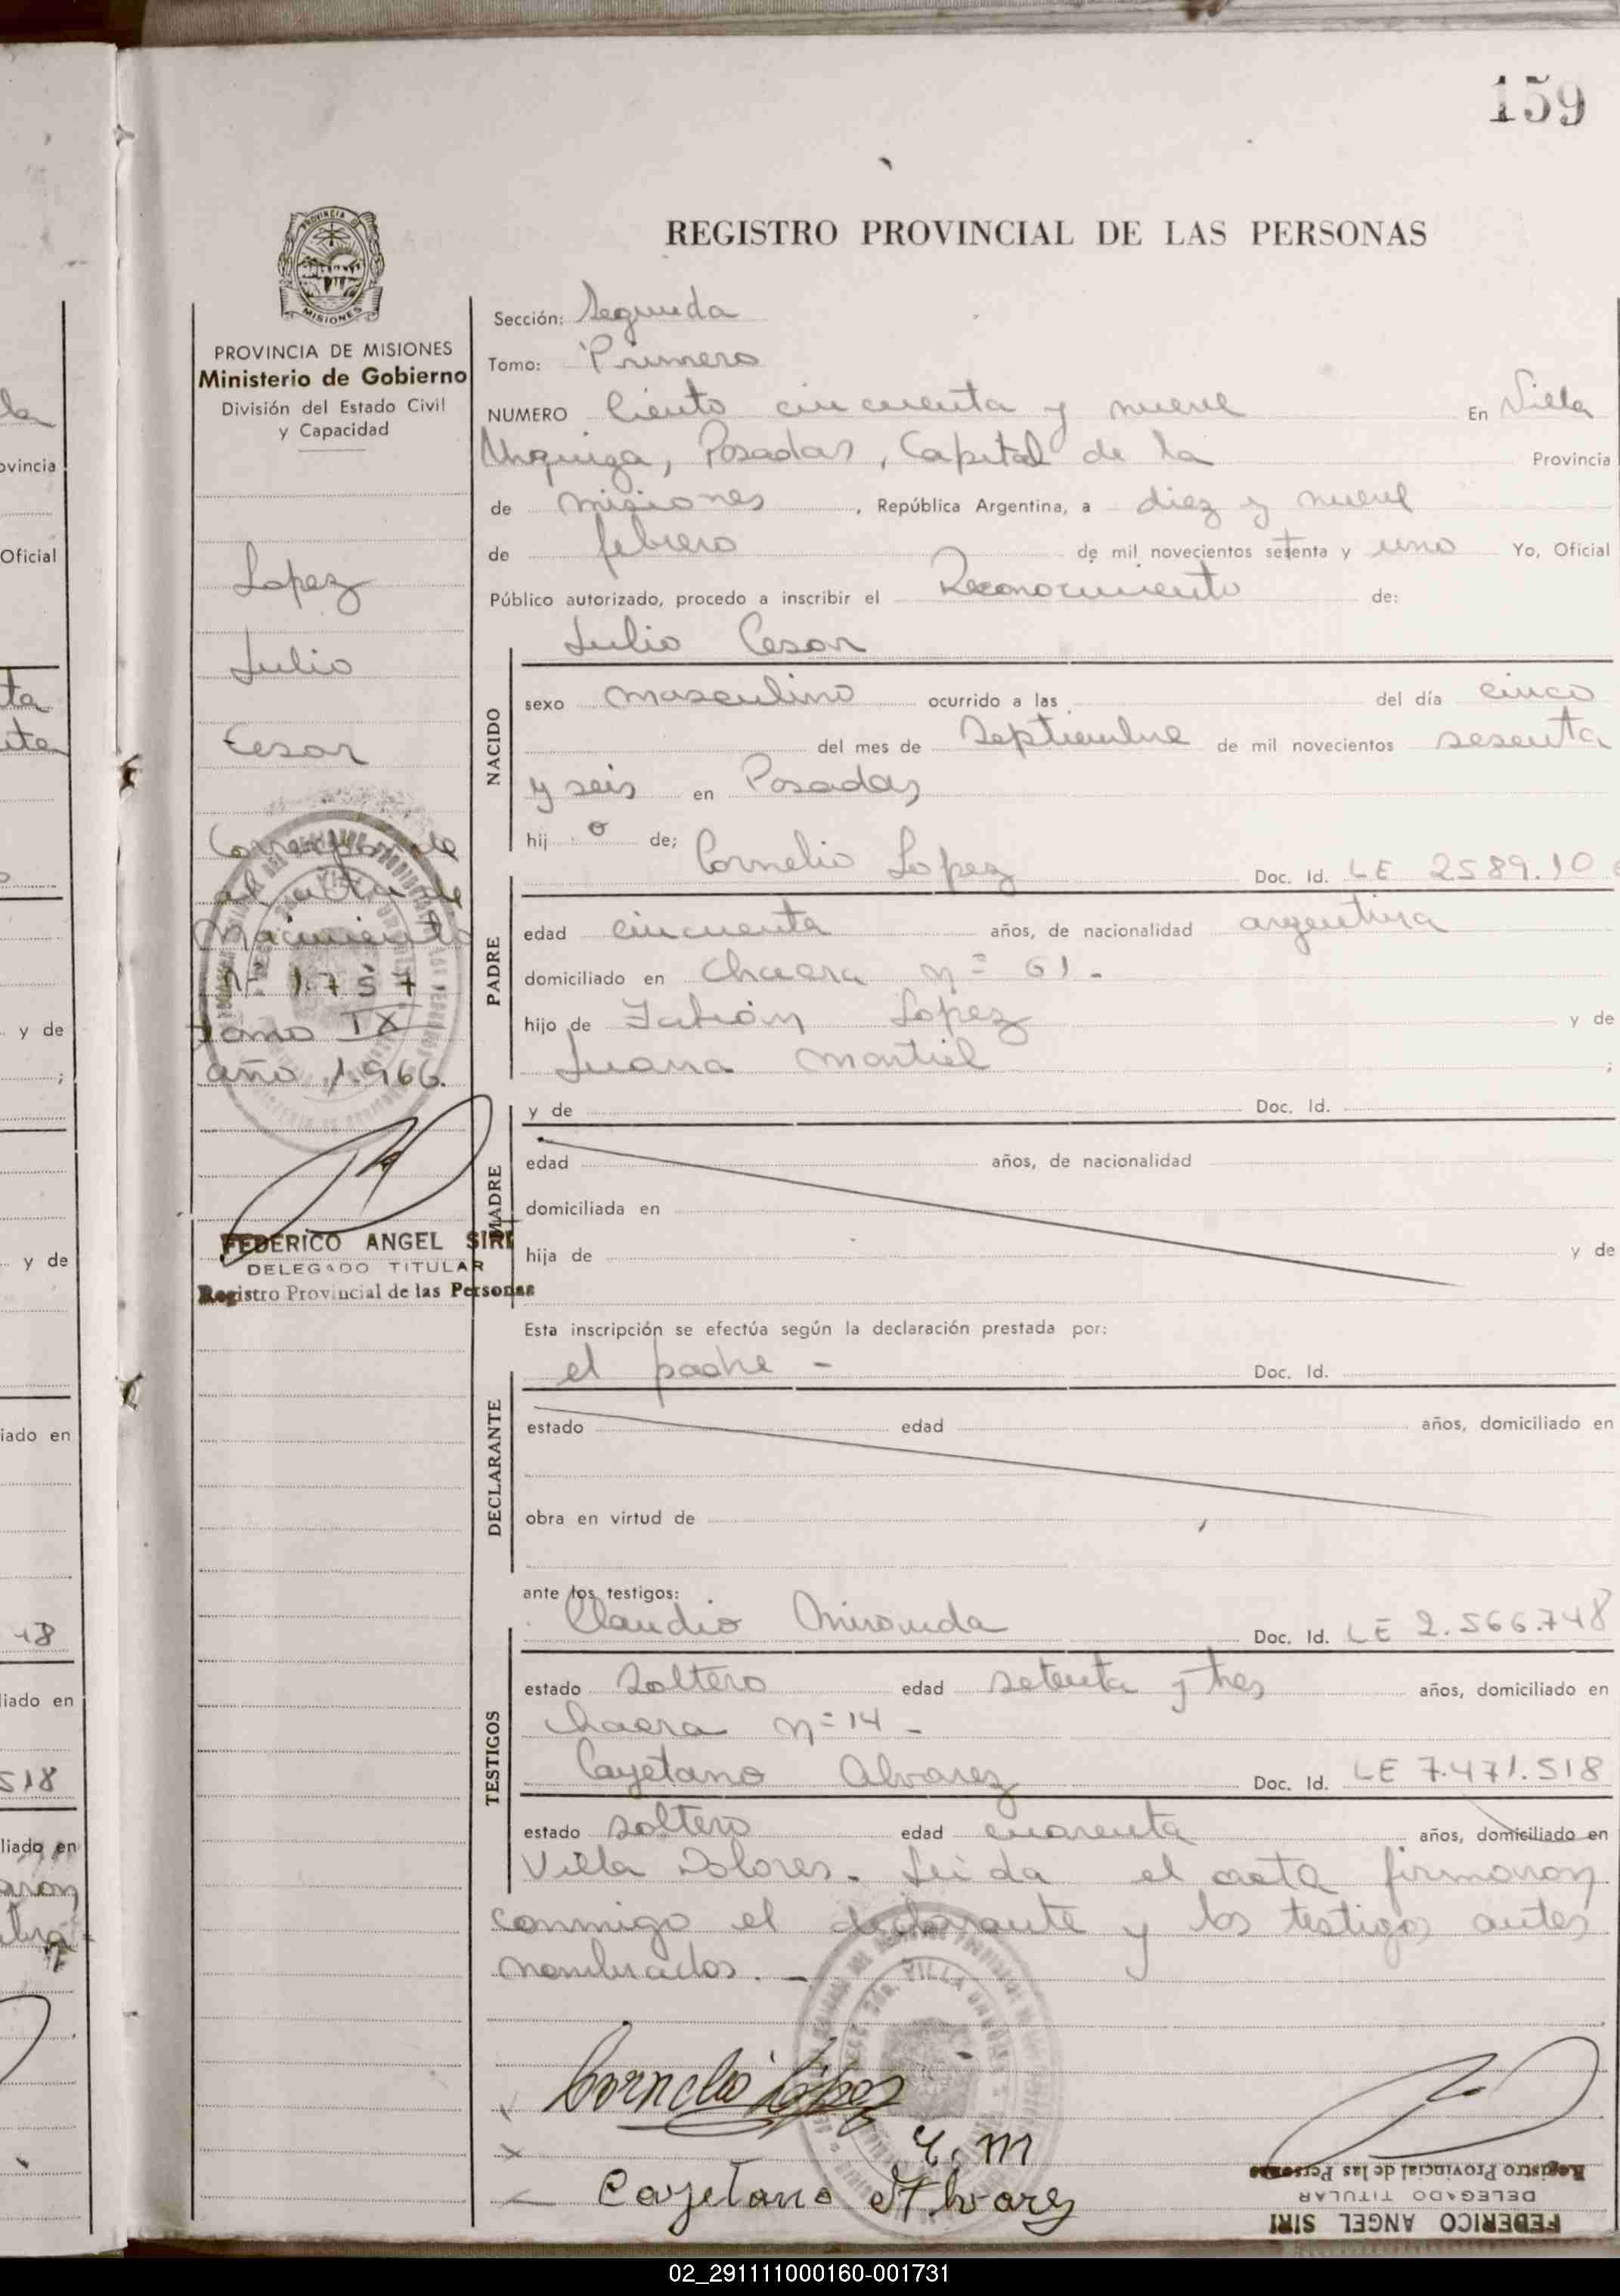 159
REGISTRO PROVINCIAL DE LAS PERSONAS
PROVINCIA DE MISIONES
Ministerio de Gobierno
División del Estado Civil
y Capacidad
Lopez
Julio
Cesar
Corresponde
al acta de
Nacimiento
Nº 1.757
tomo IX
año 1.966.
FEDERICO ANGEL SIRI
DELEGADO TITULAR
Registro Provincial de las Personas
Sección: Segunda
Tomo: Primero
NUMERO Ciento cincuenta y nueve En Villa
Urquiza, Posadas, Capital de la Provincia
de Misiones, República Argentina, a diez y nueve
de febrero de mil novecientos setenta y uno Yo, Oficial
Público autorizado, procedo a inscribir el Reconocimiento de:
Julio Cesar
NACIDO
sexo masculino ocurrido a las del día cinco
del mes de Septiembre de mil novecientos sesenta
y seis en Posadas
hij o de; Cornelio Lopez Doc. Id. LE 2589.10
PADRE
edad cincuenta años, de nacionalidad argentina
domiciliado en Chacra nº 61.-
hijo de Lopez y de
Juana Montiel ;
y de Doc. Id.
MADRE
edad años, de nacionalidad
domiciliada en
hija de y de
Esta inscripción se efectúa según la declaración prestada por:
el padre - Doc. Id.
DECLARANTE
estado edad años, domiciliado en
obra en virtud de
ante los testigos:
Claudio Miranda Doc. Id. LE 2.566.748
TESTIGOS
estado Soltero edad setenta y tres años, domiciliado en
Chacra nº 14 -
Cayetano Alvarez Doc. Id. LE 7.471.518
estado soltero edad cuarenta años, domiciliado en
Villa Dolores. Leida el acta firmaron
conmigo el declarante y los testigos antes
nombrados. -
Cornelio López
C. M
Cayetano Alvarez
Registro Provincial de las Personas
DELEGADO TITULAR
FEDERICO ANGEL SIRI
02_291111000160-001731